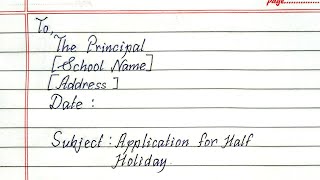 page..............
To,
The Principal
[School Name]
[Address]
Date :
Subject : Application for Half
Holiday.